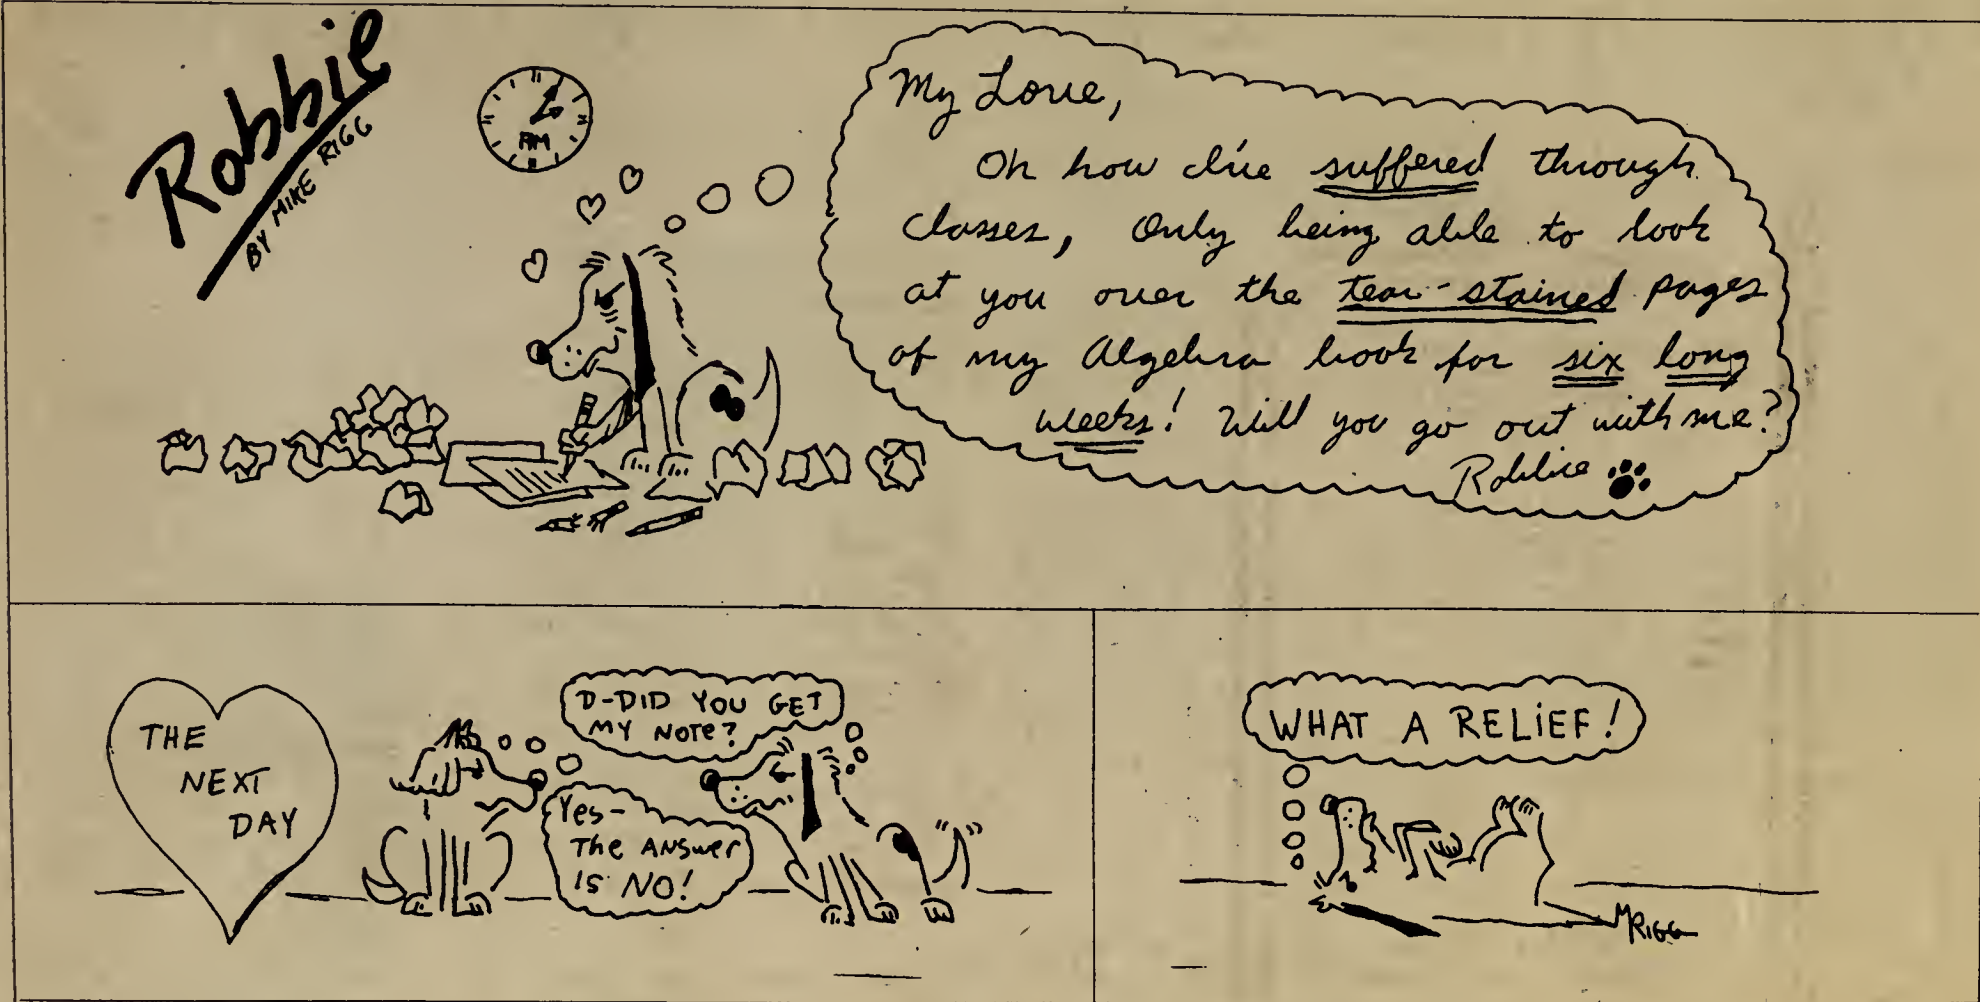 Robbie
BY MIKE RIGG
AM
My Love,
Oh how I've suffered through
classes, Only being able to look
at you over the tear-stained pages
of my Algebra book for six long
weeks! Will you go out with me?
Robbie
THE
NEXT
DAY
D-DID YOU GET
MY NOTE?
Yes-
The ANSwer
IS NO!
WHAT A RELIEF!
MRIGG